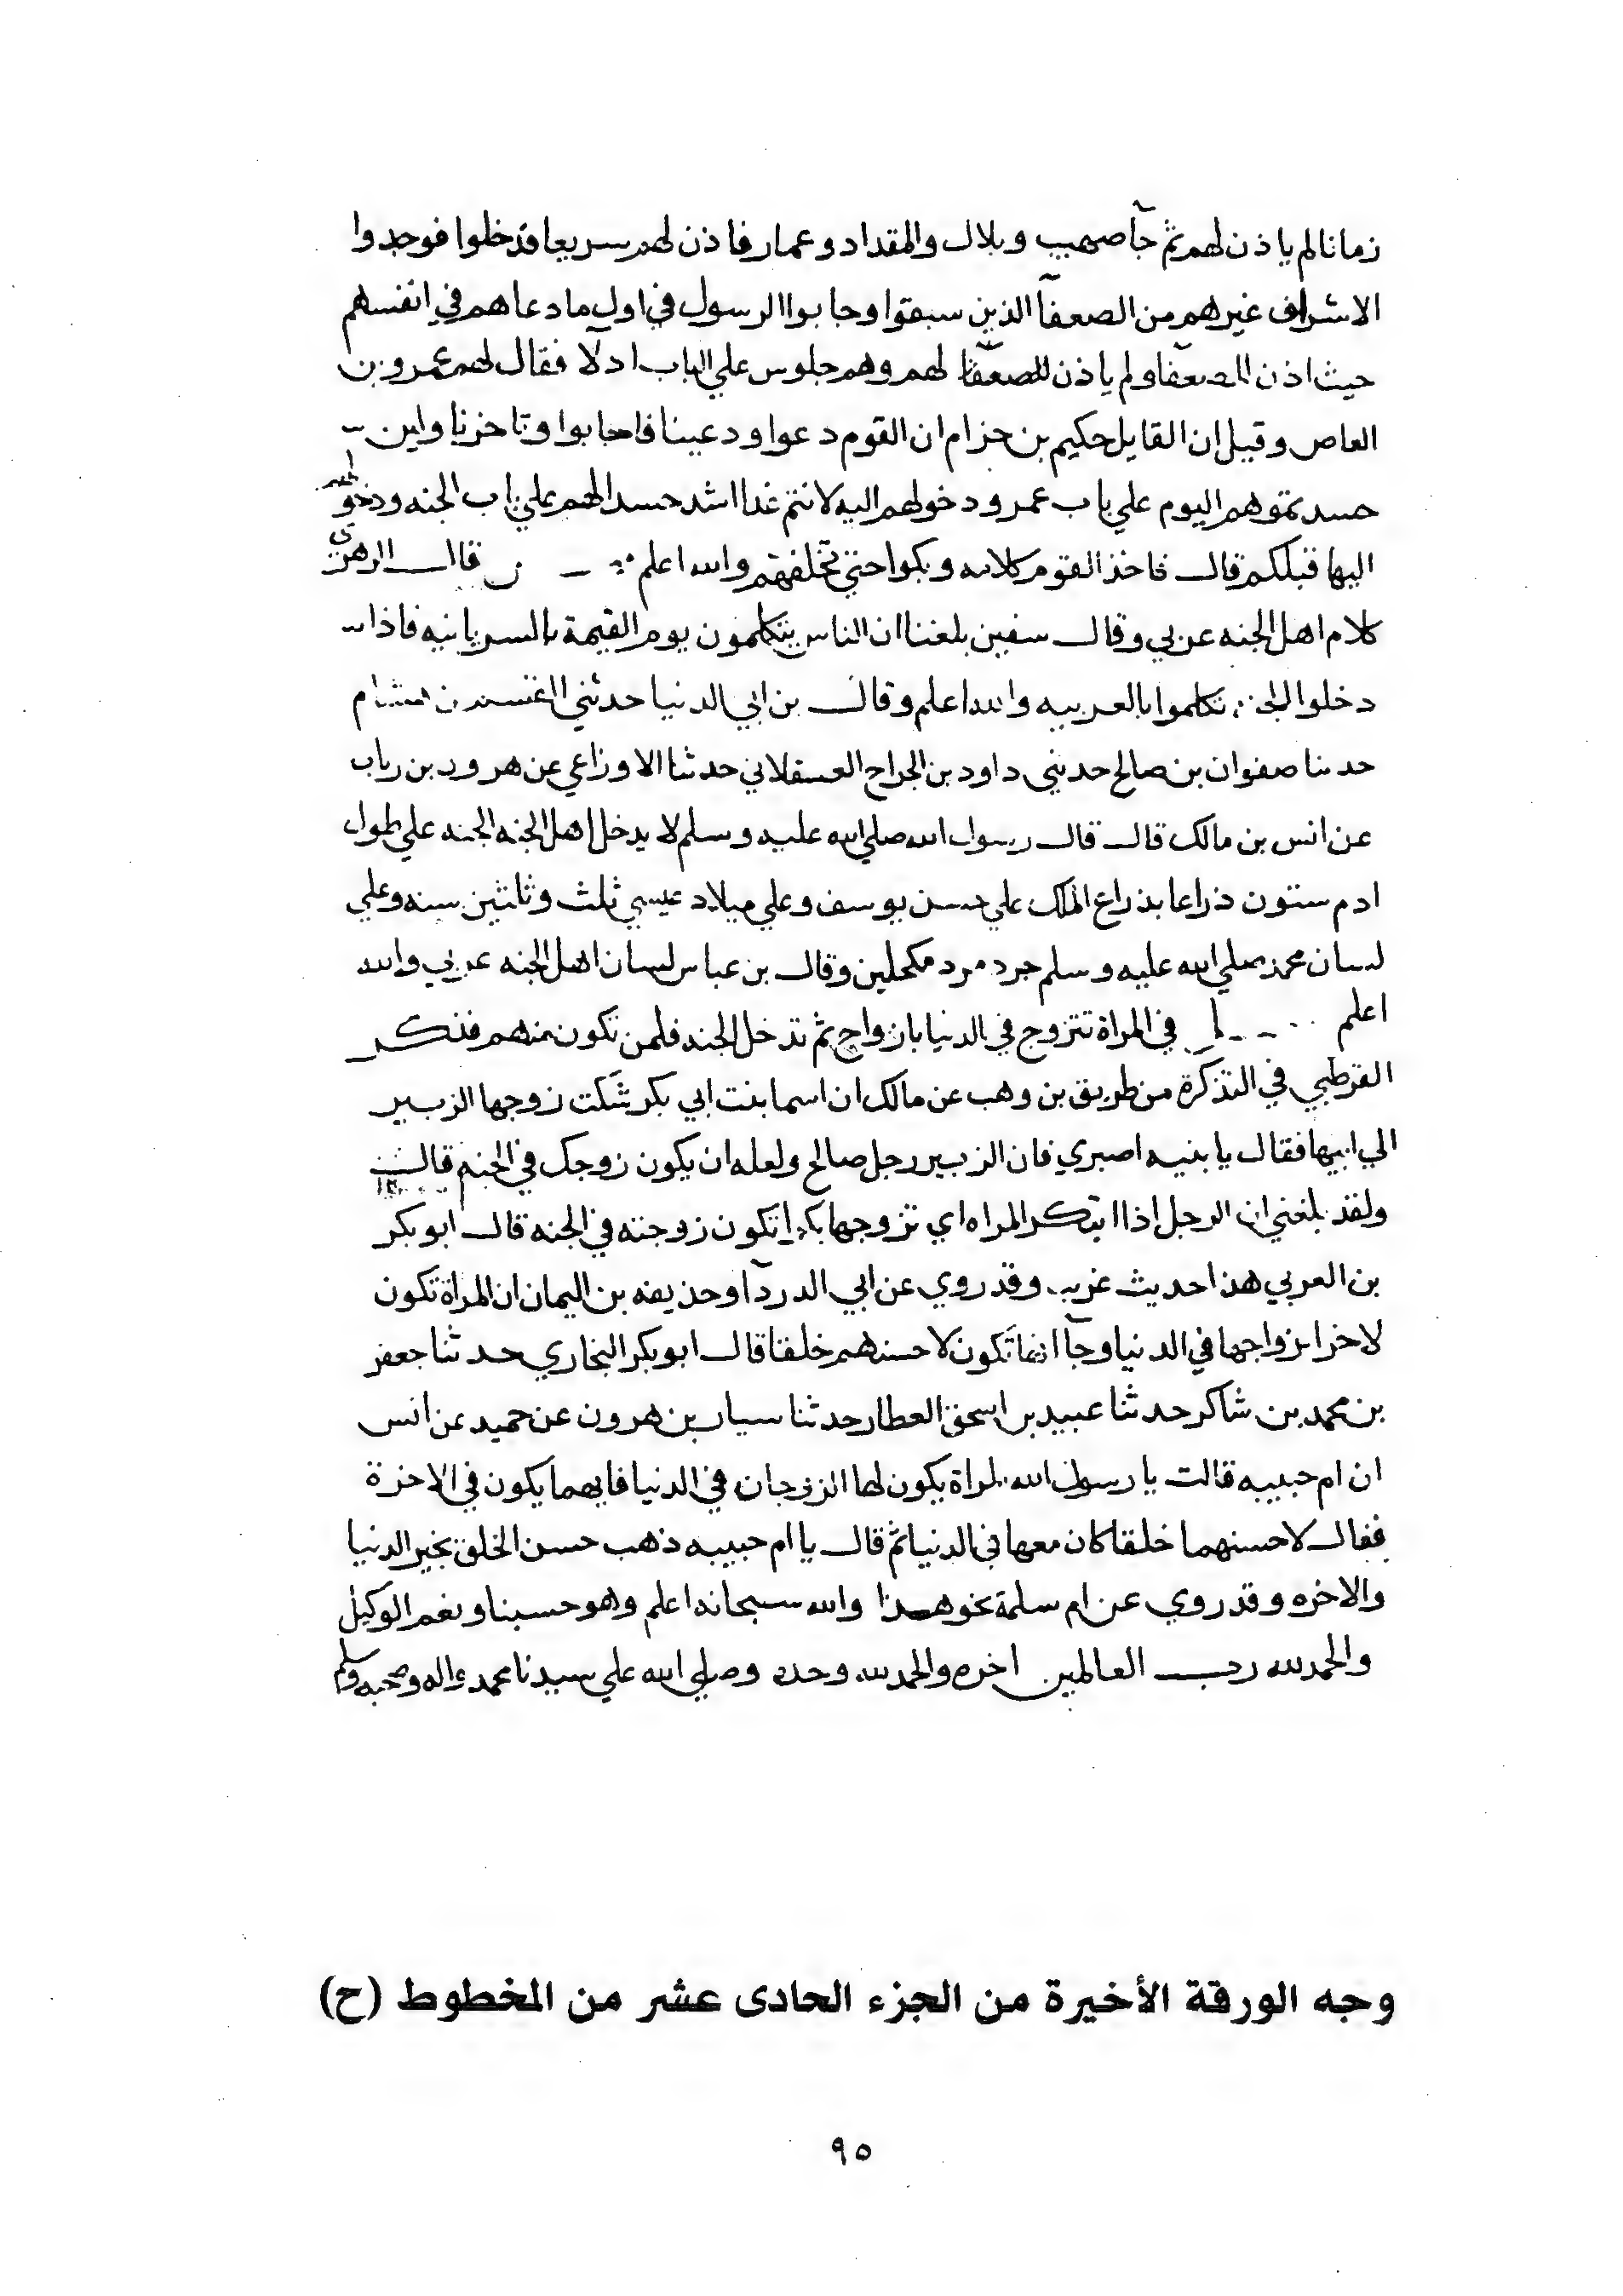 زمانا لم ياذن لهم ثم جآ صهيب وبلال والمقداد وعمار فاذن لهم سريعا فدخلوا فوجدوا
الاشراف غيرهم من الضعفآ الذين سبقوا وجابوا الرسول في اول ما دعاهم في انفسهم
حيث اذن للضعفآ ولم ياذن لهم وهم جلوس علي الباب ادلا فقال لهم عمرو بن
العاص وقيل ان القايل حكيم بن حزام ان القوم دعوا ودعينا فاجابوا وتاخرنا واين
حسدتموهم اليوم علي باب عمر ودخولهم اليه لانتم غدا اشد حسدا لهم علي باب الجنه ودخولهم
اليها قبلكم قال فاخذ القوم كلامه وبكوا حتي والله اعلم قال الزهري
كلام اهل الجنه عربي وقال سفين بلغنا ان الناس يتكلمون يوم القيمة بالسريانيه فاذا
دخلوا الجنه تكلموا بالعربيه والله اعلم وقال بن ابي الدنيا حدثني بن هشام
حدثنا صفوان بن صالح حدثني داود بن الجراح العسقلاني حدثنا الاوزاعي عن هرون بن رياب
عن انس بن مالك قال قال رسول الله صلي الله عليه وسلم لا يدخل اهل الجنه الجنه علي طول
ادم ستون ذراعا بذراع الملك علي حسن يوسف وعلي ميلاد عيسي ثلث وثلثين سنه وعلي
لسان محمد صلي الله عليه وسلم جرد مرد مكحلين وقال بن عباس لسان اهل الجنه عربي والله
اعلم في المراة تتزوج في الدنيا بازواج ثم تدخل الجنه فلمن تكون منهم فذكر
القرطبي في التذكرة من طريق بن وهب عن مالك ان اسما بنت ابي بكر شكت زوجها الزبير
الي ابيها فقال يا بنيه اصبري فان الزبير رجل صالح ولعله ان يكون زوجك في الجنه قال
ولقد بلغني ان الرجل اذا ابتكر المراه اي تزوجها بكرا تكون زوجته في الجنه قال ابو بكر
بن العربي هذا حديث غريب وقد روي عن ابي الدردآ وحذيفه بن اليمان ان المراة تكون
لاخر ازواجها في الدنيا وجآ انها تكون لاحسنهم خلقا قال ابو بكر النجاري حدثنا جعفر
بن محمد بن شاكر حدثنا عبيد بن اسحق العطار حدثنا سيار بن هرون عن حميد عن انس
ان ام حبيبه قالت يا رسول الله المراة يكون لها الزوجان في الدنيا فايهما يكون في الاخرة
فقال لاحسنهما خلقا كان معها في الدنيا ثم قال يا ام حبيبه ذهب حسن الخلق بخير الدنيا
والاخره وقد روي عن ام سلمة نحو هذا والله سبحانه اعلم وهو حسبنا ونعم الوكيل
والحمد لله رب العالمين اخره والحمد لله وحده وصلي الله علي سيدنا محمد واله وصحبه وسلم
وجه الورقة الأخيرة من الجزء الحادى عشر من المخطوط (ح)
٩٥